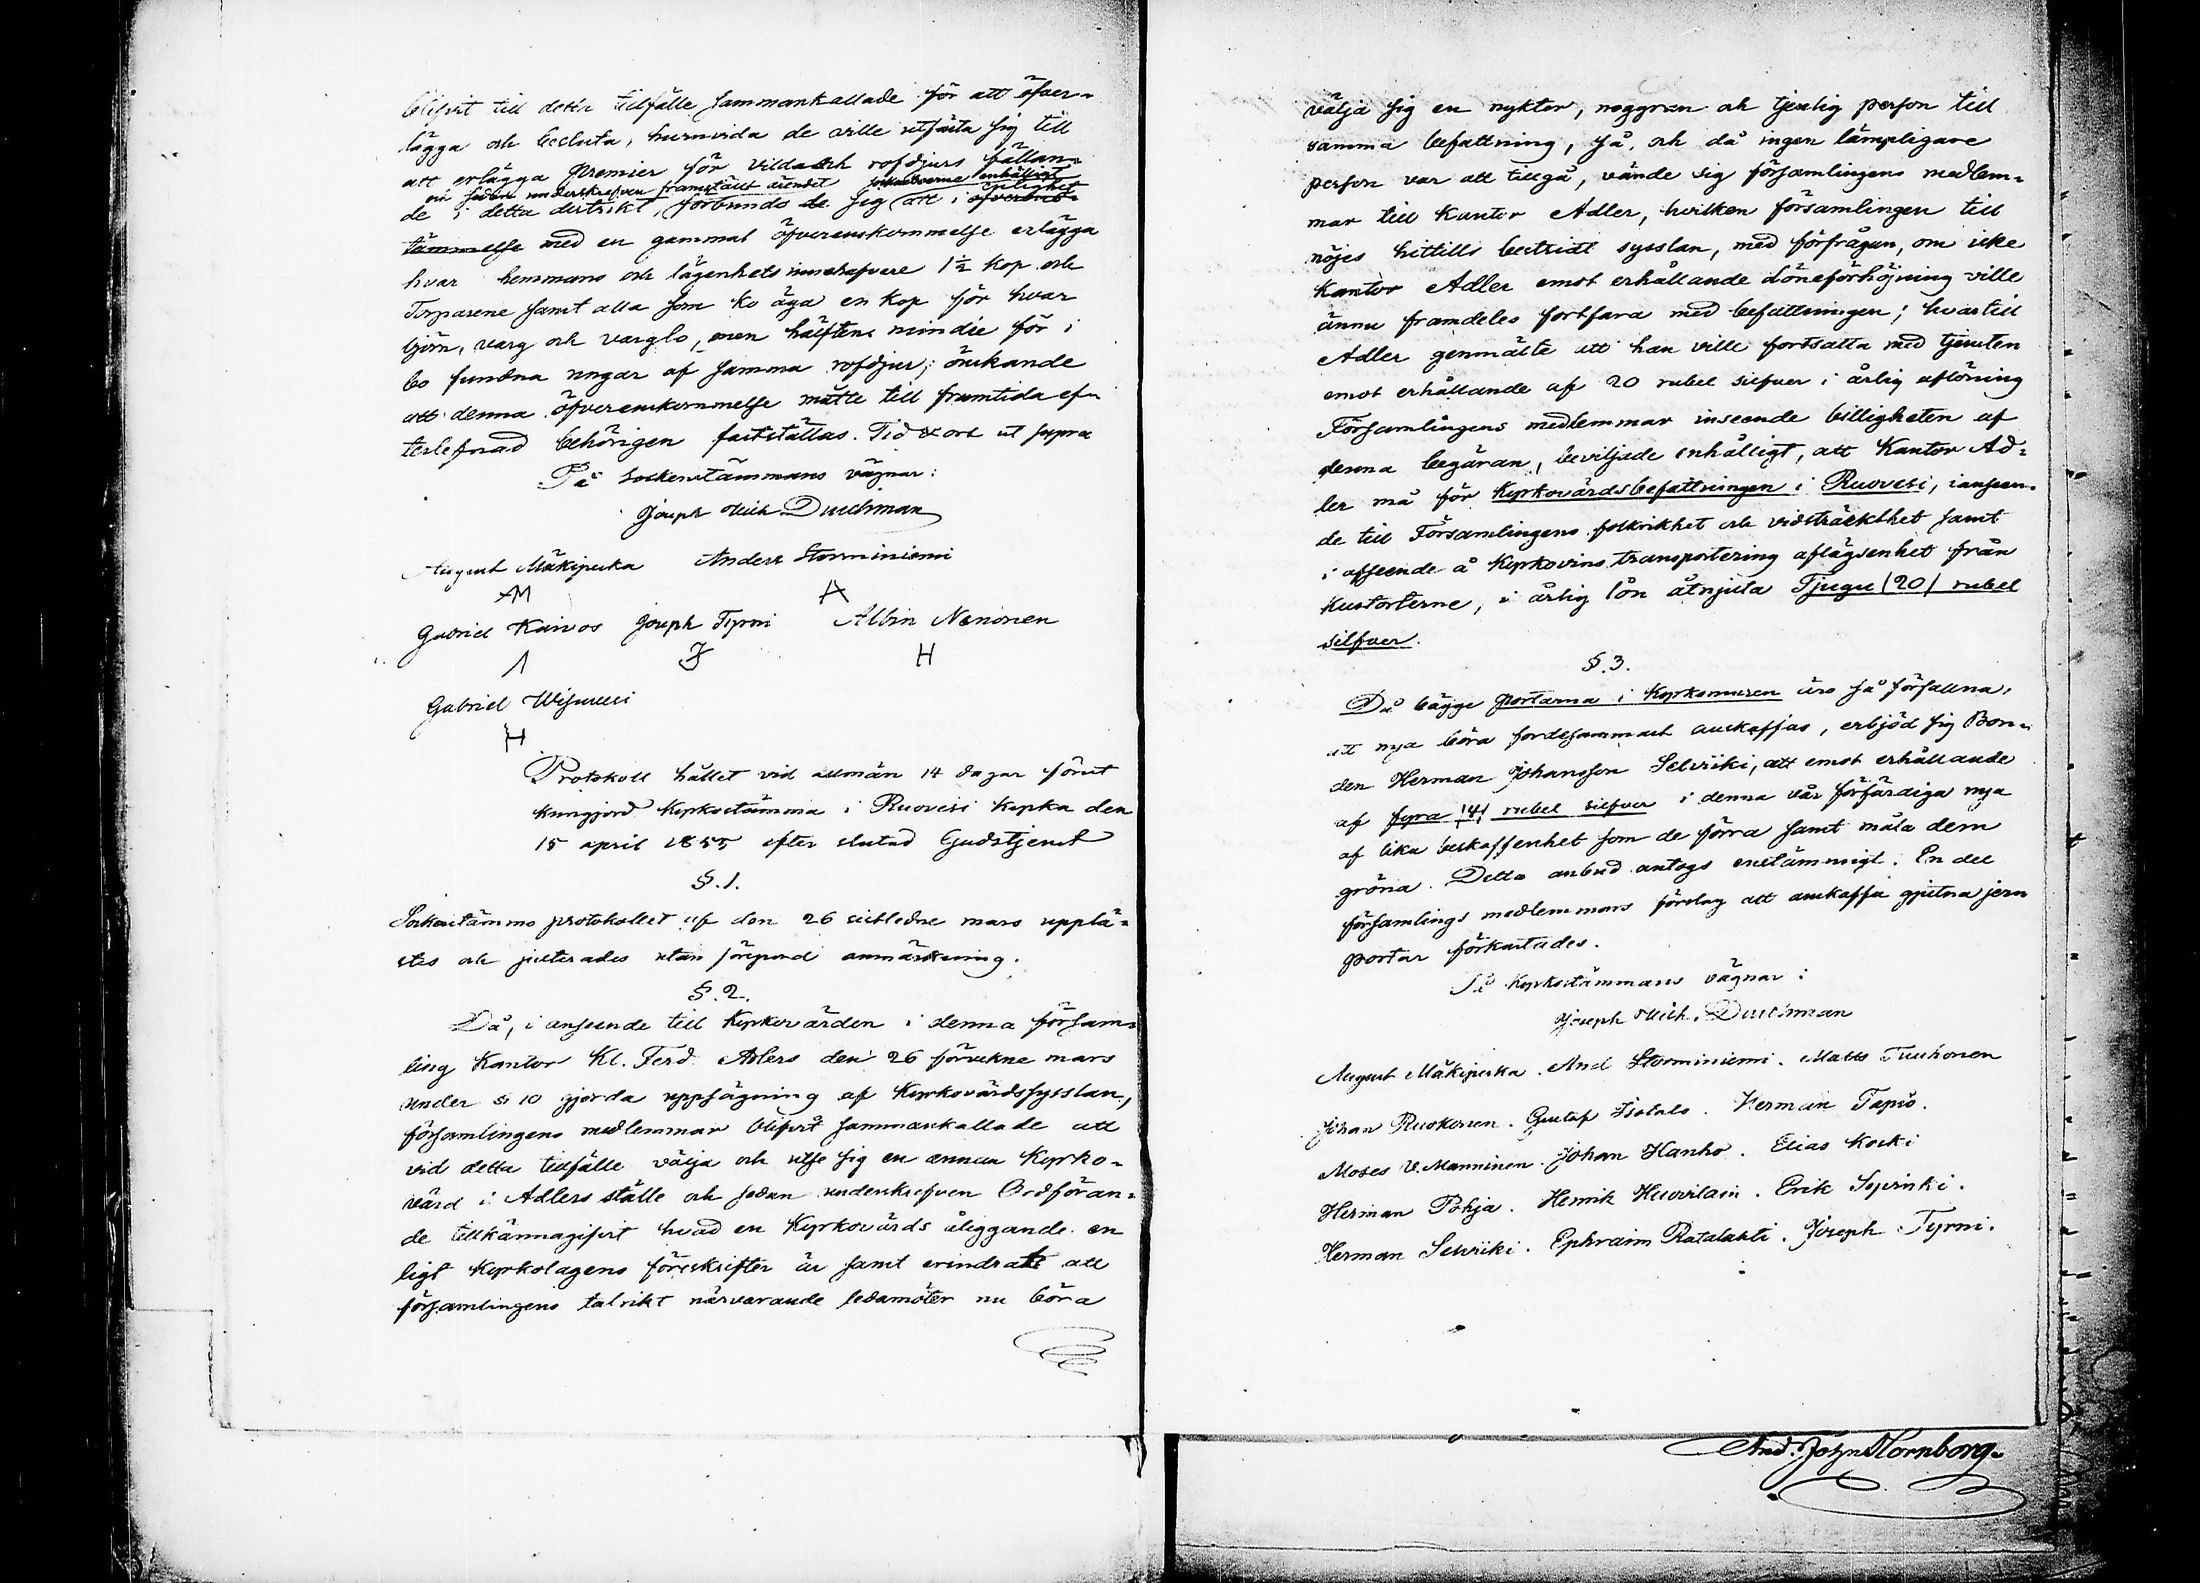 blifvit till detta tillfälle sammankallade för att öfver-
lägga och besluta, huruvida de ville utfästa sig till
att erlägga premier för vilda och rofdjurs fällan-
och sedan underskrefven framställt ärendet sockneboerne enhälligt
de i detta distrikt, förbundo de sig att i öfverens- enlighet
tämmelse med en gammal öfverenskommelse erlägga
hvar hemmans och lägenhets innehafvare 1½ kop och
Torparene samt alla som ko äga en kop för hvar
björn, varg och varglo, men hälften mindre för i
bo funðna ungar af samma rofdjur; önskande
att denna öfverenskommelse måtte till framtida ef-
terlefnad behörigen fastställas. Tid & ort ut supra
På Sockenstämmans vägnar:
Joseph Mich. Durchman
August Mäkipeska Anders Storminiemi
AM A
Gabriel Kaivos Joseph Tyrni Albin Nenonen
Λ JS H
Gabriel Wisuvesi
H
Protokoll hållet vid allmän 14 dagar förut
kungjord Kyrkostämma i Ruovesi kyrka den
15 april 1855 efter slutad Gudstjenst
§. 1.
Sockenstämmo protokollet af den 26 sistledne mars upplä-
stes och justerades utan föregående anmärkning.
§. 2.
Då, i anseende till Kyrkovärden i denna försam-
ling Kantor Kl. Ferd. Adlers den 26 förvekne mars
under § 10 gjorda uppsägning af Kyrkovärdssysslan,
församlingens medlemmar blifvit sammankallade att
vid detta tillfälle välja och utse sig en annan Kyrko-
värd i Adlers ställe och sedan underskrefven Ordföran-
de tillkännagifvit hvad en Kyrkovärds åliggande en
ligt kyrkolagens föreskrifter är samt erindrat att
församlingens talrikt närvarande ledamöter nu böra
välja sig en nykter, noggran och tjenlig person till
samma befattning, så, och då ingen lämpligare
person var att tillgå, vände sig församlingens medlem-
mar till Kantor Adler, hvilken församlingen till
nöjes hittills bestridt sysslan, med förfrågan, om icke
Kantor Adler emot erhållande löneförhöjning ville
ännu framdeles fortfara med befattningen; hvartill
Adler genmälte att han ville fortsätta med tjensten
emot erhållande af 20 rubel silfver i årlig aflöning
Församlingens medlemmar inseende billigheten af
denna begäran, beviljade enhälligt, att Kantor Ad-
ler må för Kyrkovärdsbefattningen i Ruovesi, i anseen-
de till Församlingens folkrikhet och vidsträckthet samt
i afseende å Kyrkovins transportering aflägsenhet från
Kustorterne, i årlig lön åtnjuta Tjugu (20) rubel
silfver.
§. 3.
Då bägge portarna i Kyrkomuren äro så förfallna,
att nya böra fordesammast anskaffas, erbjöd sig Bon-
den Herman Johansson Selviki, att emot erhållande
af fyra (4) rubel silfver i denna vår förfärdiga nya
af lika beskaffenhet som de förra samt måla dem
gröna. Detta anbud antogs enstämmigt. En del
församlings medlemmars förslag att anskaffa gjutna jern
portar förkastades.
På Kyrkostämmans vägnar:
Joseph Mich. Durchman
August Mäkipeska. And. Storminiemi. Matts Tuuhonen
Johan Ruokonen. Gustaf Isotalo. Herman Tapio.
Moses V. Manninen. Johan Hanho. Elias Koski
Herman Pohja. Henrik Huovilain. Erik Syvinki.
Herman Selviki. Ephraim Ratalahti. Joseph Tyrni.
And. Joh. Hornborg.